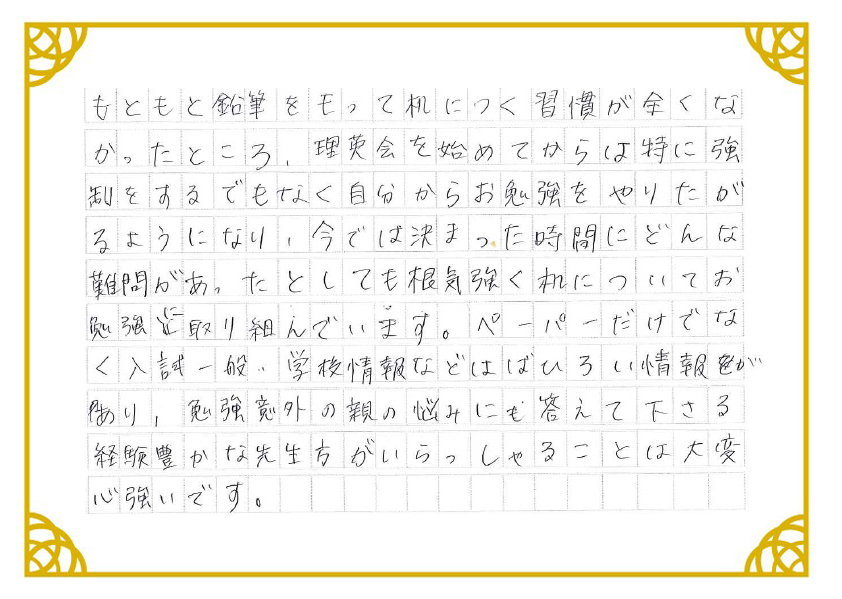 もともと鉛筆をもって机につく習慣が全くな
かったところ、理英会を始めてからは特に強
制をするでもなく自分からお勉強をやりたが
るようになり、今では決まった時間にどんな
難問があったとしても根気強く机についてお
勉強に取り組んでいます。ペーパーだけでな
く入試一般・学校情報などはばひろい情報が
あり、勉強意外の親の悩みにも答えて下さる
経験豊かな先生方がいらっしゃることは大変
心強いです。